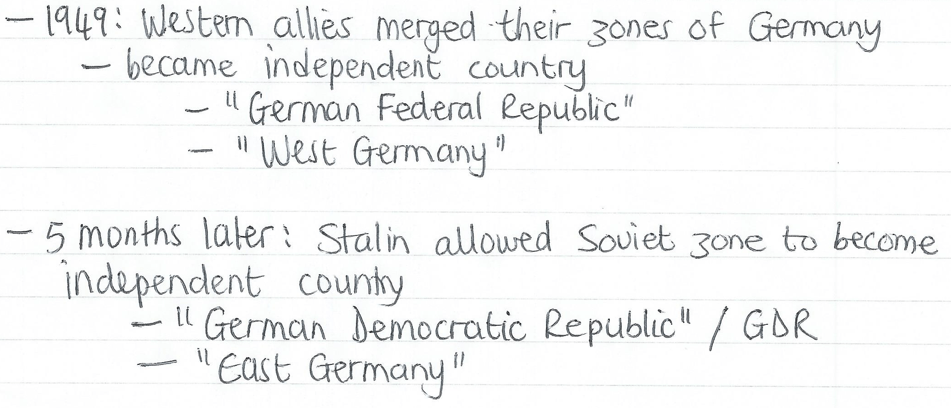 - 1949: Western allies merged their zones of Germany
- became independent country
- "German Federal Republic"
- "West Germany"
- 5 months later: Stalin allowed Soviet zone to become
independent country
- "German Democratic Republic" / GDR
- "East Germany"